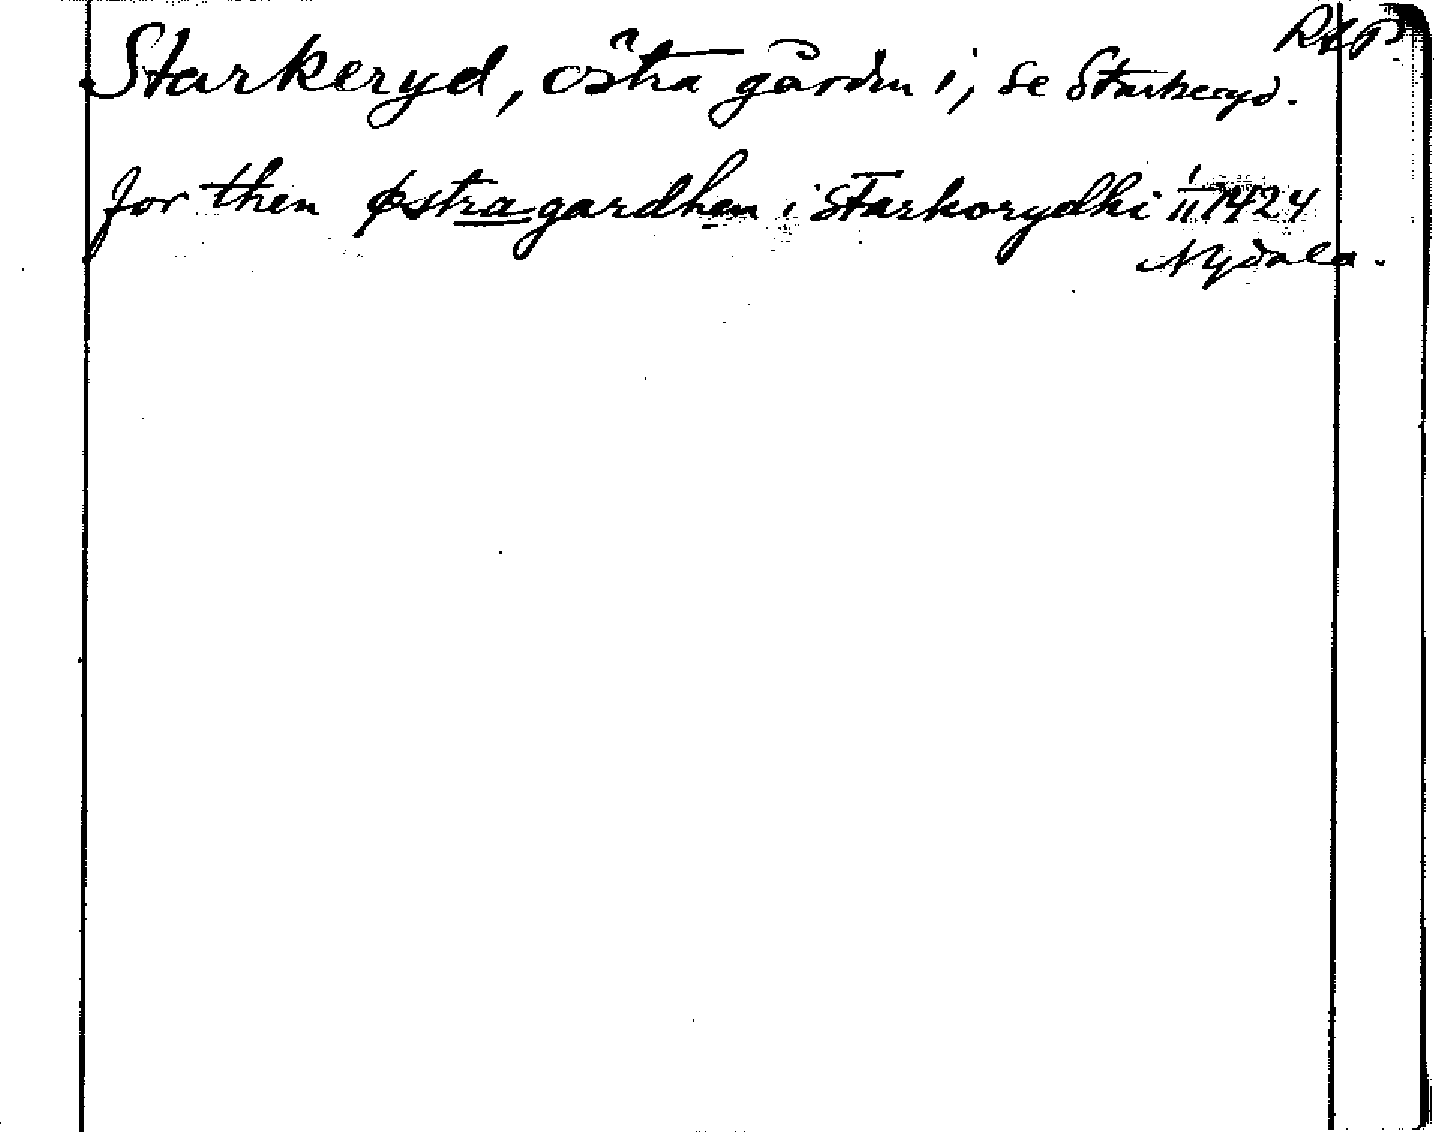 RAP
Starkeryd, östra gården i, se Starkeryd.
for then østragardhen i Starkorydhi 1/11 1424
Nydala.